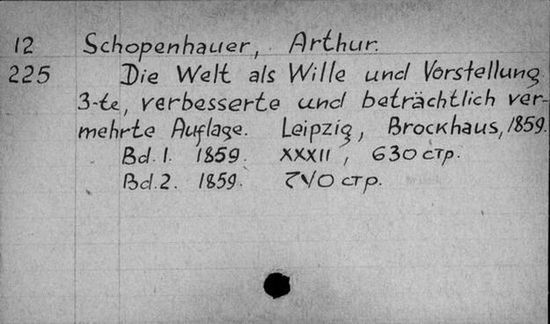 12 Schopenhauer, Arthur.
225 Die Welt als Wille und Vorstellung
3-te, verbesserte und beträchtlich ver-
mehrte Auflage. Leipzig, Brockhaus, 1859.
Bd. 1. 1859. XXXII, 630 стр.
Bd. 2. 1859. стр.